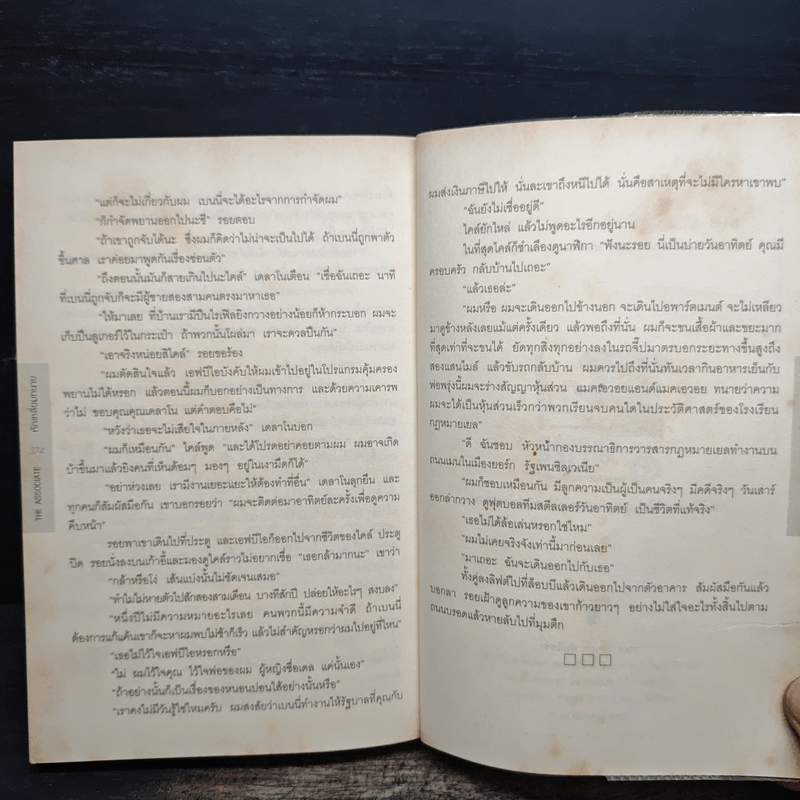 “แต่ก็จะไม่เกี่ยวกับผม เบนนี่จะได้อะไรจากการกำจัดผม”
“ก็กำจัดพยานออกไปนะซี” รอยตอบ
“ถ้าเขาถูกจับได้นะ ซึ่งผมก็คิดว่าไม่น่าจะเป็นไปได้ ถ้าเบนนี่ถูกพาตัว
ขึ้นศาล เราค่อยมาพูดกันเรื่องซ่อนตัว”
“ถึงตอนนั้นมันก็สายเกินไปนะไคล์” เดลาโนเตือน “เชื่อฉันเถอะ นาที
ที่เบนนี่ถูกจับก็จะมีผู้ชายสองสามคนตรงมาหาเธอ”
“ให้มาเลย ที่บ้านเรามีปืนไรเฟิลยิงกวางอย่างน้อยก็ห้ากระบอก ผมจะ
เก็บปืนลูเกอร์ไว้ในกระเป๋า ถ้าพวกนั้นโผล่มา เราจะดวลปืนกัน”
“เอาจริงหน่อยสิไคล์” รอยขอร้อง
“ผมตัดสินใจแล้ว เอฟบีไอบังคับให้ผมเข้าไปอยู่ในโปรแกรมคุ้มครอง
พยานไม่ได้หรอก แล้วตอนนี้ผมก็บอกอย่างเป็นทางการ และด้วยความเคารพ
ว่าไม่ ขอบคุณคุณเดลาโน แต่คำตอบคือไม่”
“หวังว่าเธอจะไม่เสียใจในภายหลัง” เดลาโนบอก
“ผมก็เหมือนกัน” ไคล์พูด “และได้โปรดอย่าคอยตามผม ผมอาจเกิด
บ้าขึ้นมาแล้วยิงคนที่เห็นด้อมๆ มองๆ อยู่ในเงามืดก็ได้”
“อย่าห่วงเลย เรามีงานเยอะแยะให้ต้องทำที่อื่น” เดลาโนลุกยืน และ
ทุกคนก็สัมผัสมือกัน เขาบอกรอยว่า “ผมจะติดต่อมาอาทิตย์ละครั้งเพื่อดูความ
คืบหน้า”
รอยพาเขาเดินไปที่ประตู และเอฟบีไอก็ออกไปจากชีวิตของไคล์ ประตู
ปิด รอยนั่งลงบนเก้าอี้และมองดูไคล์ราวไม่อยากเชื่อ “เธอกล้ามากนะ” เขาว่า
“กล้าหรือโง่ เส้นแบ่งนั้นไม่ชัดเจนเสมอ”
“ทำไมไม่หายตัวไปสักสองสามเดือน บางทีสักปี ปล่อยให้อะไรๆ สงบลง”
“หนึ่งปีไม่มีความหมายอะไรเลย คนพวกนี้มีความจำดี ถ้าเบนนี่
ต้องการแก้แค้นเขาก็จะหาผมพบไม่ช้าก็เร็ว แล้วไม่สำคัญหรอกว่าผมไปอยู่ที่ไหน”
“เธอไม่ไว้ใจเอฟบีไอหรอกหรือ”
“ไม่ ผมไว้ใจคุณ ไว้ใจพ่อของผม ผู้หญิงชื่อเดล แค่นั้นเอง”
“ถ้าอย่างนั้นก็เป็นเรื่องของหนอนบ่อนไส้อย่างนั้นหรือ”
“เราคงไม่มีวันรู้ใช่ไหมครับ ผมสงสัยว่าเบนนี่ทำงานให้รัฐบาลที่คุณกับ
หักเหลี่ยมทนาย
374
THE ASSOCIATE
ผมส่งเงินภาษีไปให้ นั่นละเขาถึงหนีไปได้ นั่นคือสาเหตุที่จะไม่มีใครหาเขาพบ”
“ฉันยังไม่เชื่ออยู่ดี”
ไคล์ยักไหล่ แล้วไม่พูดอะไรอีกอยู่นาน
ในที่สุดไคล์ก็ชำเลืองดูนาฬิกา “ฟังนะรอย นี่เป็นบ่ายวันอาทิตย์ คุณมี
ครอบครัว กลับบ้านไปเถอะ”
“แล้วเธอล่ะ”
“ผมหรือ ผมจะเดินออกไปข้างนอก จะเดินไปอพาร์ตเมนต์ จะไม่เหลียว
มาดูข้างหลังเลยแม้แต่ครั้งเดียว แล้วพอถึงที่นั่น ผมก็จะขนเสื้อผ้าและขยะมาก
ที่สุดเท่าที่จะขนได้ ยัดทุกสิ่งทุกอย่างลงในรถจี๊ปมาตรบอกระยะทางขึ้นสูงถึง
สองแสนไมล์ แล้วขับรถกลับบ้าน ผมควรไปถึงที่นั่นทันเวลากินอาหารเย็นกับ
พ่อพรุ่งนี้ผมจะร่างสัญญาหุ้นส่วน แมคอะวอยแอนด์แมคเอวอย ทนายว่าความ
ผมจะได้เป็นหุ้นส่วนเร็วกว่าพวกเรียนจบคนใดในประวัติศาสตร์ของโรงเรียน
กฎหมายเยล”
“ดี ฉันชอบ หัวหน้ากองบรรณาธิการวารสารกฎหมายเยลทำงานบน
ถนนเมนในเมืองยอร์ก รัฐเพนซิลเวเนีย”
“ผมก็ชอบเหมือนกัน มีลูกความเป็นผู้เป็นคนจริงๆ มีคดีจริงๆ วันเสาร์
ออกล่ากวาง ดูฟุตบอลทีมสตีลเลอร์วันอาทิตย์ เป็นชีวิตที่แท้จริง”
“เธอไม่ได้ล้อเล่นหรอกใช่ไหม”
“ผมไม่เคยจริงจังเท่านี้มาก่อนเลย”
“มาเถอะ ฉันจะเดินออกไปกับเธอ”
ทั้งคู่ลงลิฟต์ไปที่ล็อบบีแล้วเดินออกไปจากตัวอาคาร สัมผัสมือกันแล้ว
บอกลา รอยเฝ้าดูลูกความของเขาก้าวยาวๆ อย่างไม่ใส่ใจอะไรทั้งสิ้นไปตาม
ถนนบรอดแล้วหายลับไปที่มุมตึก